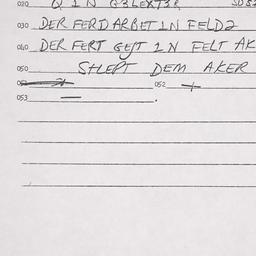 020 Q 1 N G3LEXT3R SD8
030 DER FERD ARBET 1N FELD2
040 DER FERT GEJT 1N FELT AK
050 SHLEPT DEM AKER
052 +
053 =